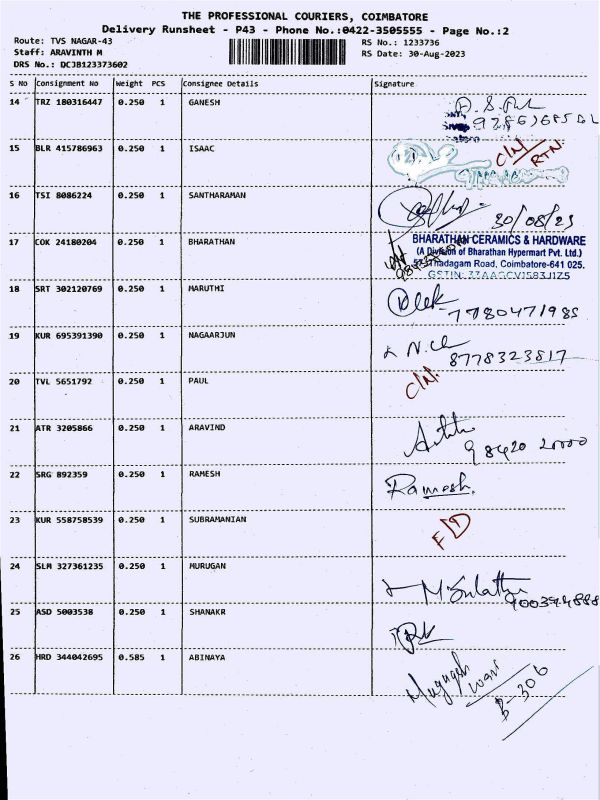 THE PROFESSIONAL COURIERS, COIMBATORE
Delivery Runsheet - P43 - Phone No.:0422-3505555 - Page No.:2
Route: TVS NAGAR-43 RS No.: 1233736
Staff: ARAVINTH M RS Date: 30-Aug-2023
DRS No.: DCJB123373602
S No Consignment No Weight PCS Consignee Details Signature
14 TRZ 180316447 0.250 1 GANESH
15 BLR 415786963 0.250 1 ISAAC C/N RTN
16 TSI 8086224 0.250 1 SANTHARAMAN
30/08/23
17 COK 24180204 0.250 1 BHARATHAN BHARATHAN CERAMICS & HARDWARE
(A Division of Bharathan Hypermart Pvt. Ltd.)
Thadagam Road, Coimbatore-641 025.
18 SRT 302120769 0.250 1 MARUTHI
7780471985
19 KUR 695391390 0.250 1 NAGAARJUN
8778323817
20 TVL 5651792 0.250 1 PAUL C/N.
21 ATR 3205866 0.250 1 ARAVIND
98420 20000
22 SRG 892359 0.250 1 RAMESH Ramesh.
23 KUR 558758539 0.250 1 SUBRAMANIAN F/D
24 SLM 327361235 0.250 1 MURUGAN
25 ASD 5003538 0.250 1 SHANAKR
26 HRD 344042695 0.585 1 ABINAYA
B-306